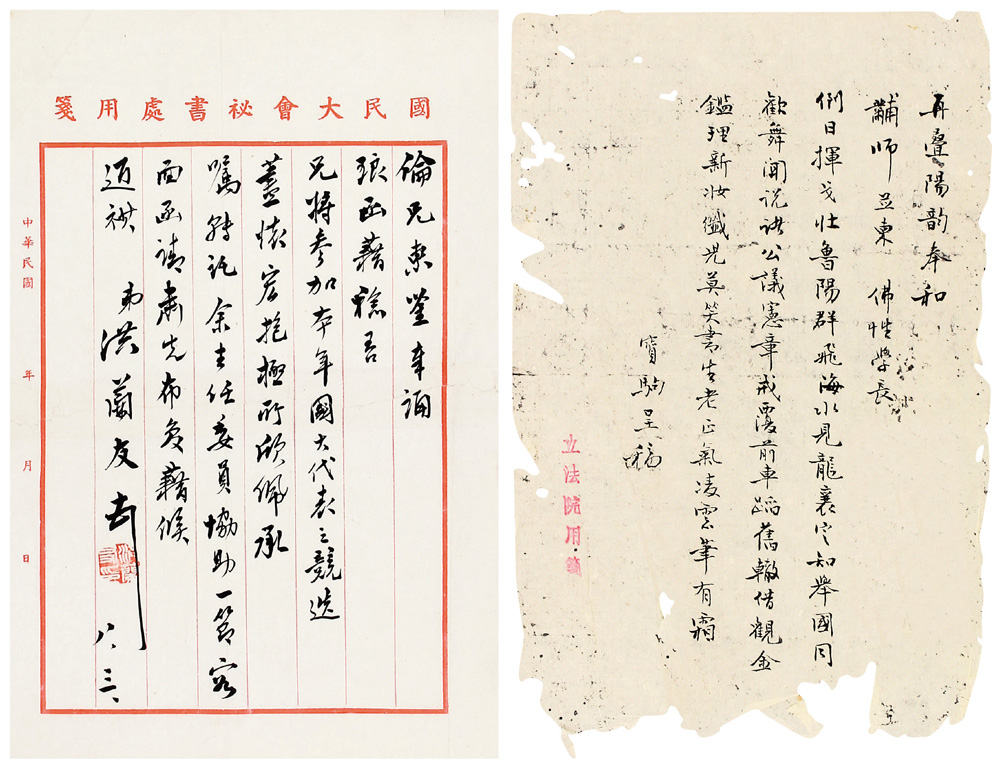 國民大會秘書處用箋
倫兄惠鑒奉誦
琅函藉稔吾
兄將參加本年國大代表之競選
藎懷宏抱極所欣佩承
囑轉託余主任委員協助一節容
面函請肅先布复藉候
道祺
弟洪蘭友
八、三、
中華民國 年 月 日
再疊陽韵奉和
黼師並柬 佛性學長
倒日揮戈壯魯陽群飛海水見龍襄定知舉國同
歡舞聞說諸公議憲章戒覆前車蹈舊轍借觀金
鑑理新妝纖兒莫笑書生老正氣凌雲筆有霜
寶駒呈稿
立法院用箋